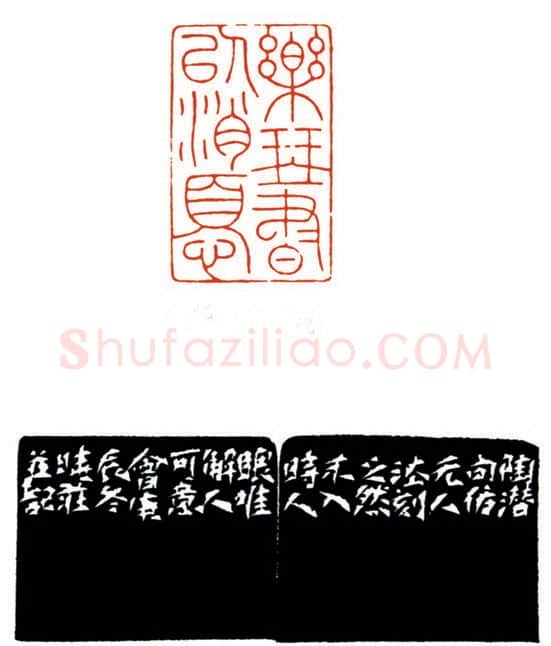 樂琴書
以消憂
Shufaziliao.COM
陶潜
句仿
元人
法刻
之然
未入
時人
眼唯
解人
可意
會庚
辰冬
莊
並記